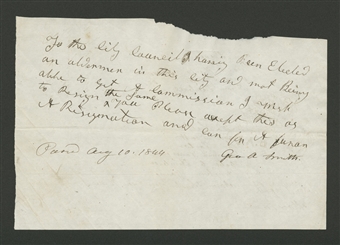 To the City Council I having been Elected
an aldermen in this City and not being
able to get a Commission I wish
to Resign the Same
& you Please except this as
A Resignation and can
Aug 10. 1844 Geo A Smith